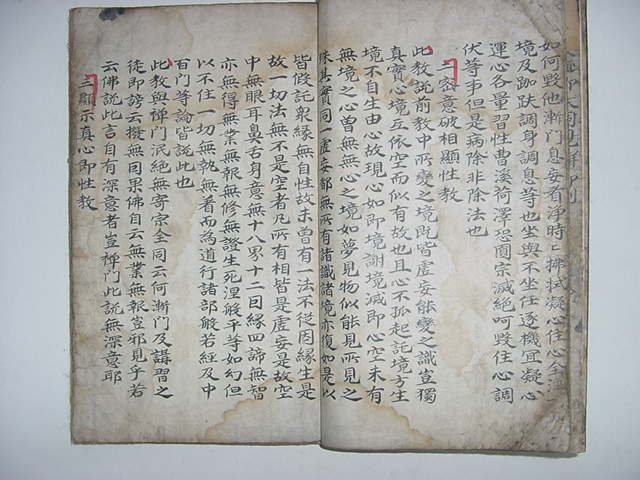 如何毀他漸門息妄看淨時〻拂拭凝心住心全注一
境及跏趺調身調息等也坐與不坐任逐機宜凝心
運心各量習性曹溪荷澤恐圓宗滅絕呵毀住心調
伏等事但是病除非除法也
二密意破相顯性教
此教說前教中所變之境既皆虛妄能變之識豈獨
真實心境互依空而似有故也且心不孤起託境方生
境不自生由心故現心如即境謝境滅即心空未有
無境之心曽無無心之境如夢見物似能見所見之
殊其實同一虛妄都無所有諸識諸境亦復如是以
皆假託衆緣無自性故未曽有一法不從因緣生是
故一切法無不是空者凡所有相皆是虛妄是故空
中無眼耳鼻舌身意無十八界十二因緣四諦無智
亦無得無業無報無修無證生死涅槃平等如幻但
以不住一切無執無著而爲道行諸部般若經及中
百門等論皆說此也
此教與禪門泯絕無寄宗全同云何漸門及講習之
徒即謗云撥無因果佛自云無業無報豈邪見乎若
云佛說此言自有深意者豈禪門此說無深意耶
三顯示真心即性教